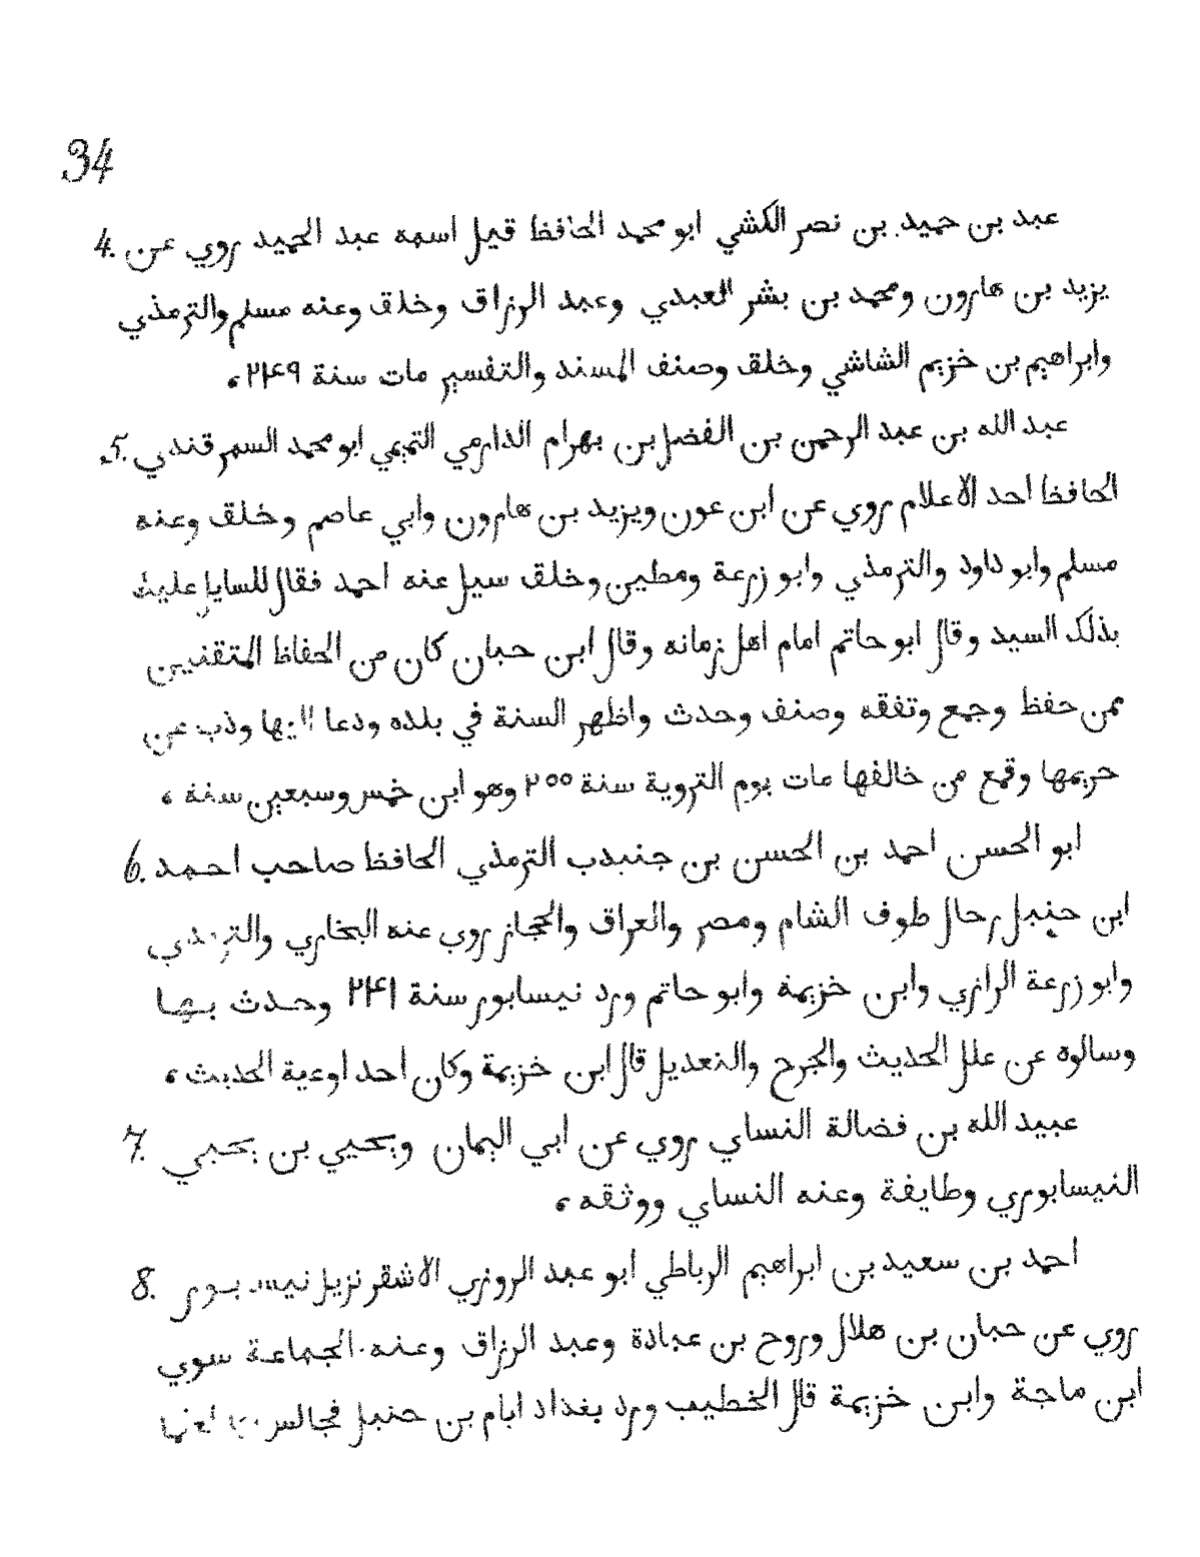 34
4. عبد بن حميد بن نصر الكشي ابو محمد الحافظ قيل اسمه عبد الحميد روي عن
يزيد بن هارون ومحمد بن بشر العبدي وعبد الرزاق وخلق وعنه مسلم والترمذي
وابراهيم بن خزيم الشاشي وخلق وصنف المسند والتفسير مات سنة ۲۴۹،
5. عبد الله بن عبد الرحمن بن الفضل بن بهرام الدارمي التميمي ابو محمد السمرقندي
الحافظ احد الاعلام روي عن ابن عون ويزيد بن هارون وابي عاصم وخلق وعنه
مسلم وابو داود والترمذي وابو زرعة ومطين وخلق سيل عنه احمد فقال للسايل عليك
بذلك السيد وقال ابو حاتم امام اهل زمانه وقال ابن حبان كان من الحفاظ المتقنين
ممن حفظ وجمع وتفقه وصنف وحدث واظهر السنة في بلده ودعا اليها وذب عن
حريمها وقمع من خالفها مات يوم التروية سنة ۲۵۵ وهو ابن خمس وسبعين سنة،
6. ابو الحسن احمد بن الحسن بن جنيدب الترمذي الحافظ صاحب احمد
ابن حنبل رحال طوف الشام ومصر والعراق والحجاز روي عنه البخاري والترمذي
وابو زرعة الرازي وابن خزيمة وابو حاتم ورد نيسابور سنة ۲۴۱ وحدث بها
وسالوه عن علل الحديث والجرح والتعديل قال ابن خزيمة وكان احد اوعية الحديث،
7. عبيد الله بن فضالة النساي روي عن ابي اليمان ويحيي بن يحيي
النيسابوري وطايفة وعنه النساي ووثقه،
8. احمد بن سعيد بن ابراهيم الرباطي ابو عبد الروزي الاشقر نزيل نيسابور
روي عن حبان بن هلال وروح بن عبادة وعبد الرزاق وعنه الجماعة سوي
ابن ماجة وابن خزيمة قال الخطيب ورد بغداد ايام بن حنبل فجالس